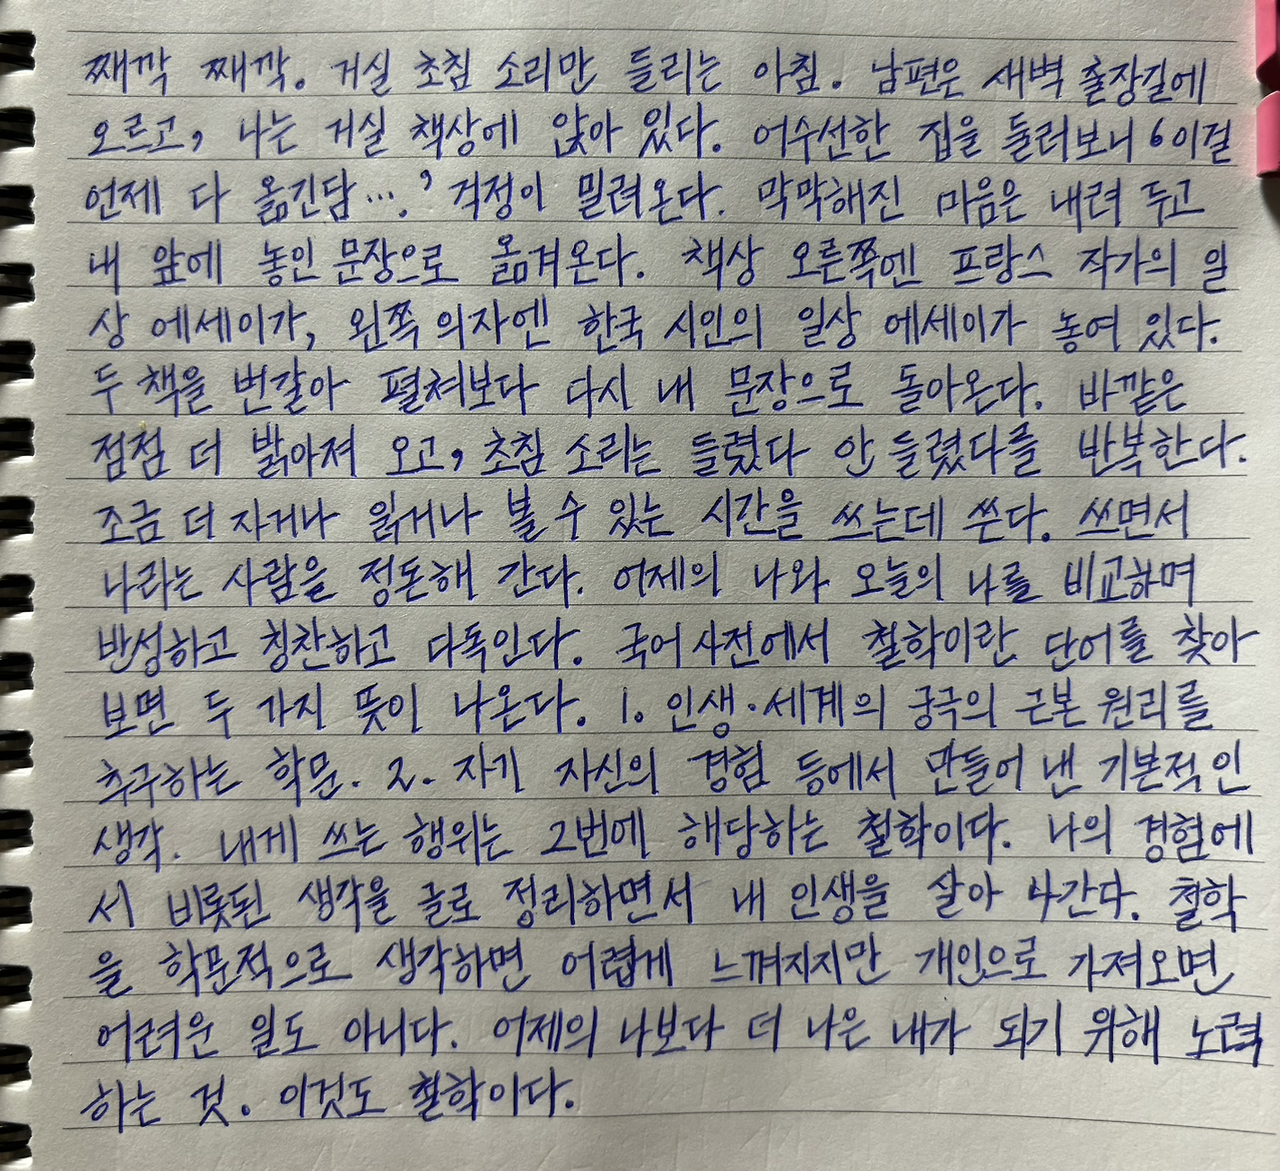 째깍 째깍. 거실 초침 소리만 들리는 아침. 남편은 새벽 출장길에
오르고, 나는 거실 책상에 앉아 있다. 어수선한 집을 둘러보니 ‘이걸
언제 다 옮긴담….’ 걱정이 밀려온다. 막막해진 마음은 내려 두고
내 앞에 놓인 문장으로 옮겨온다. 책상 오른쪽엔 프랑스 작가의 일
상 에세이가, 왼쪽 의자엔 한국 시인의 일상 에세이가 놓여 있다.
두 책을 번갈아 펼쳐보다 다시 내 문장으로 돌아온다. 바깥은
점점 더 밝아져 오고, 초침 소리는 들렸다 안 들렸다를 반복한다.
조금 더 자거나 읽거나 볼 수 있는 시간을 쓰는데 쓴다. 쓰면서
나라는 사람을 정돈해 간다. 어제의 나와 오늘의 나를 비교하며
반성하고 칭찬하고 다독인다. 국어사전에서 철학이란 단어를 찾아
보면 두 가지 뜻이 나온다. 1. 인생·세계의 궁극의 근본 원리를
추구하는 학문. 2. 자기 자신의 경험 등에서 만들어 낸 기본적인
생각. 내게 쓰는 행위는 2번에 해당하는 철학이다. 나의 경험에
서 비롯된 생각을 글로 정리하면서 내 인생을 살아 나간다. 철학
을 학문적으로 생각하면 어렵게 느껴지지만 개인으로 가져오면
어려운 일도 아니다. 어제의 나보다 더 나은 내가 되기 위해 노력
하는 것. 이것도 철학이다.